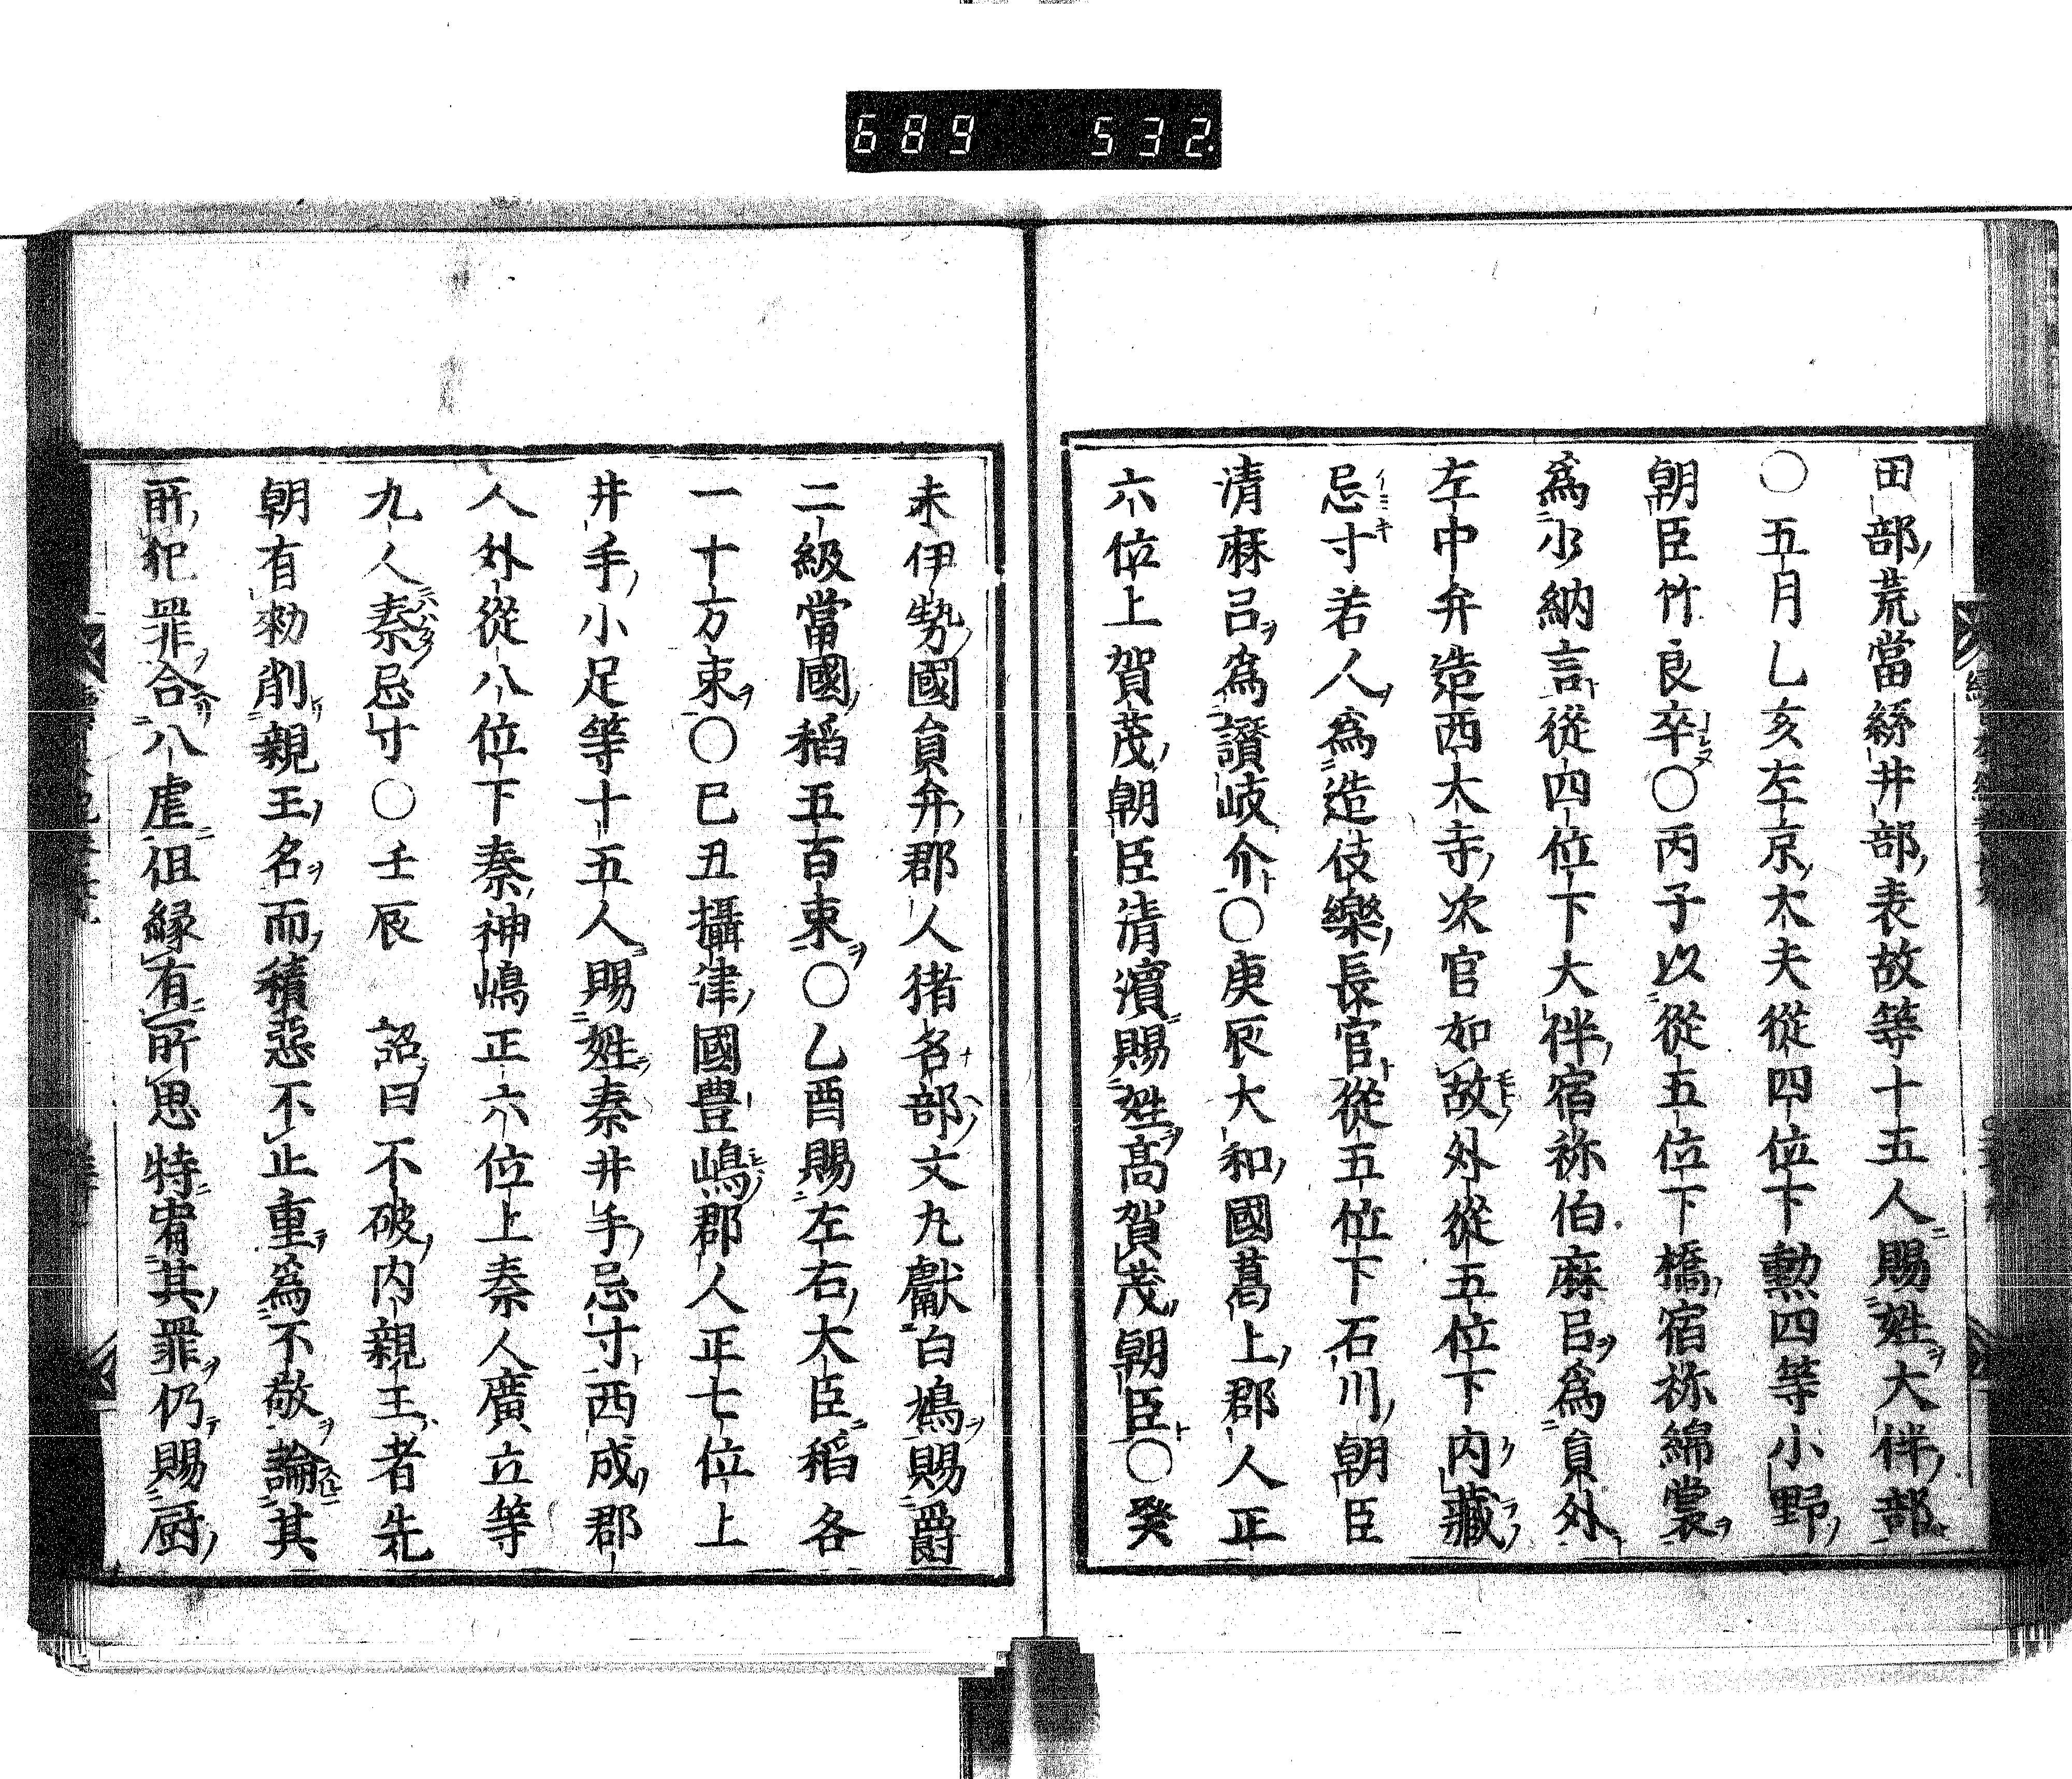 689 532
田部荒當絲井部表故等十五人賜姓大伴部
〇五月乙亥左京太夫從四位下勲四等小野
朝臣竹良卒〇丙子以從五位下橋宿祢綿裳
爲少納言從四位下大伴宿祢伯麻呂爲員外
左中弁造西大寺次官如故外從五位下内藏
忌寸若人爲造伎樂長官從五位下石川朝臣
清麻呂爲讃岐介〇庚辰大和國葛上郡人正
六位上賀茂朝臣清濱賜姓髙賀茂朝臣〇癸
未伊勢國員弁郡人猪名部文九獻白鳩賜爵
二級當國稻五百束〇乙酉賜左右大臣稻各
一十万束〇巳丑攝津國豊嶋郡人正七位上
井手小足等十五人賜姓秦井手忌寸西成郡
人外從八位下秦神嶋正六位上秦人廣立等
九人秦忌寸〇壬辰 詔曰不破内親王者先
朝有勑削親王名而積惡不止重爲不敬論其
所犯罪合八虐但縁有所思特宥其罪仍賜厨